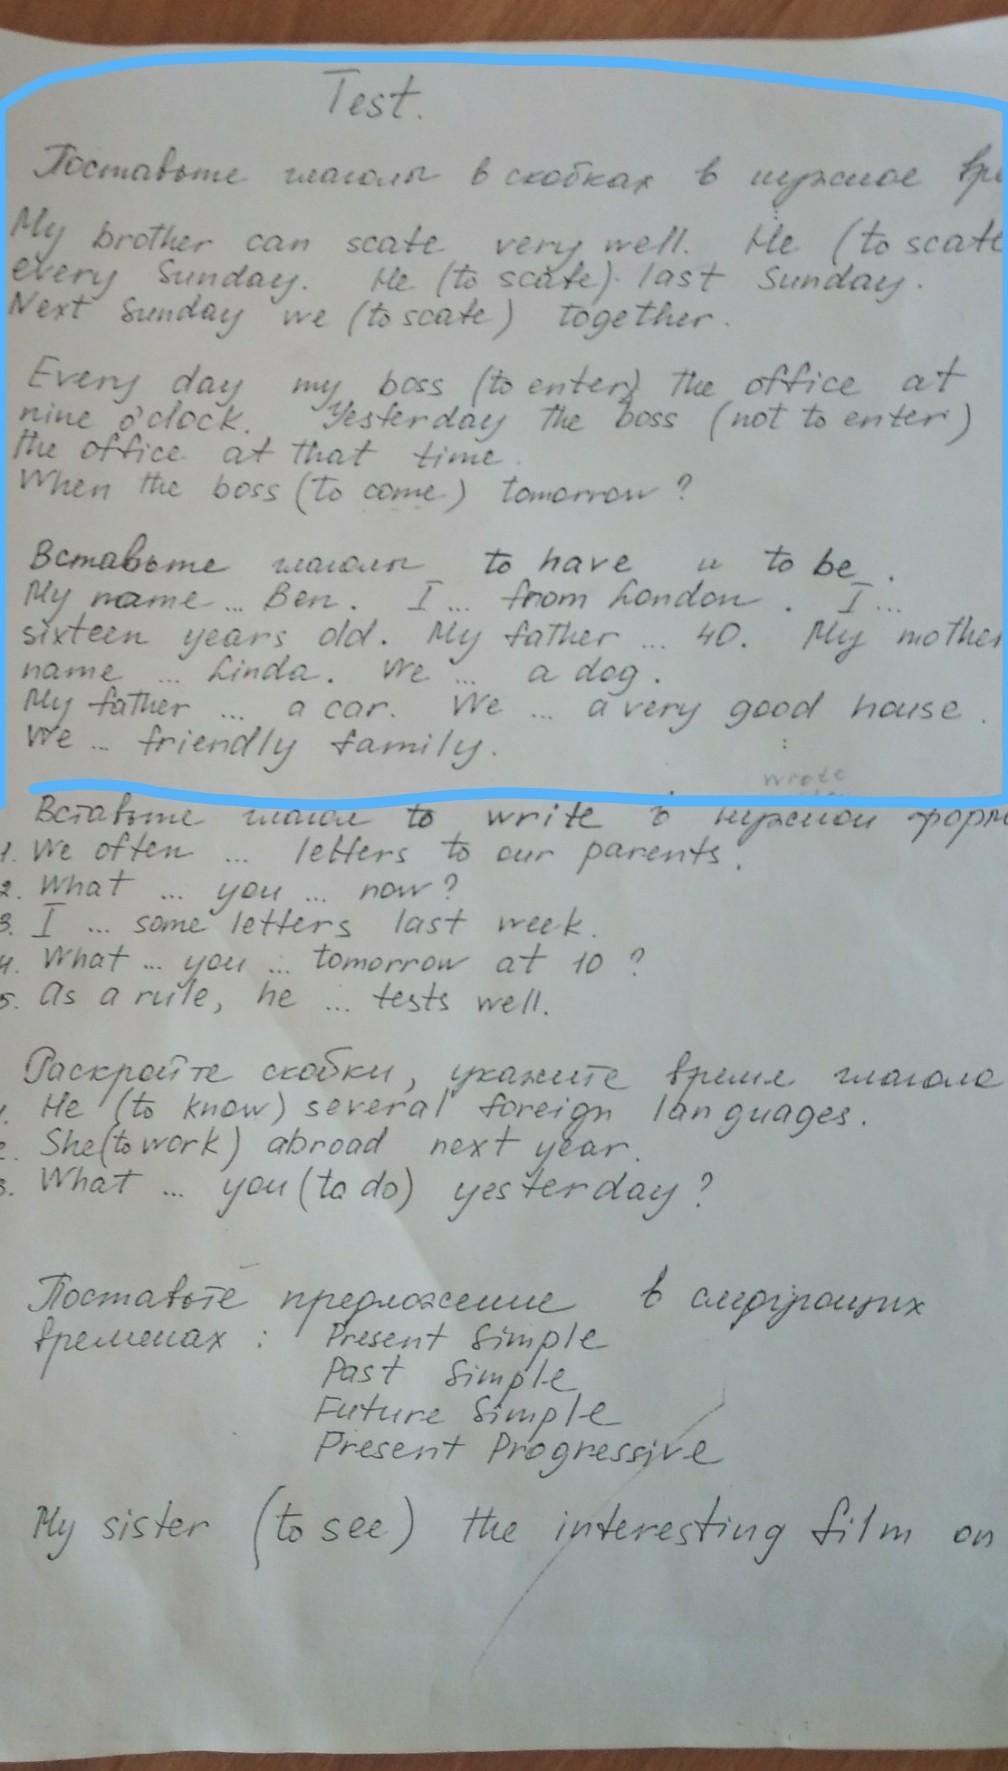 Test.
Поставьте глаголы в скобках в нужное вре
My brother can scate very well. He (to scate
every Sunday. He (to scate) last Sunday.
Next Sunday we (to scate) together.
Every day my boss (to enter) the office at
nine o'clock. Yesterday the boss (not to enter)
the office at that time.
When the boss (to come) tomorrow?
Вставьте глаголы to have и to be.
My name ... Ben. I ... from London. I ...
sixteen years old. My father ... 40. My mother
name ... Linda. We ... a dog.
My father ... a car. We ... a very good house.
We ... friendly family.
wrote
Вставьте глагол to write в нужной форме
1. We often ... letters to our parents.
2. What ... you ... now?
3. I ... some letters last week.
4. What ... you ... tomorrow at 10?
5. As a rule, he ... tests well.
Раскройте скобки, укажите время глагола
1. He (to know) several foreign languages.
2. She (to work) abroad next year.
3. What ... you (to do) yesterday?
Поставьте предложение в следующих
временах: Present Simple
Past Simple
Future Simple
Present Progressive
My sister (to see) the interesting film on